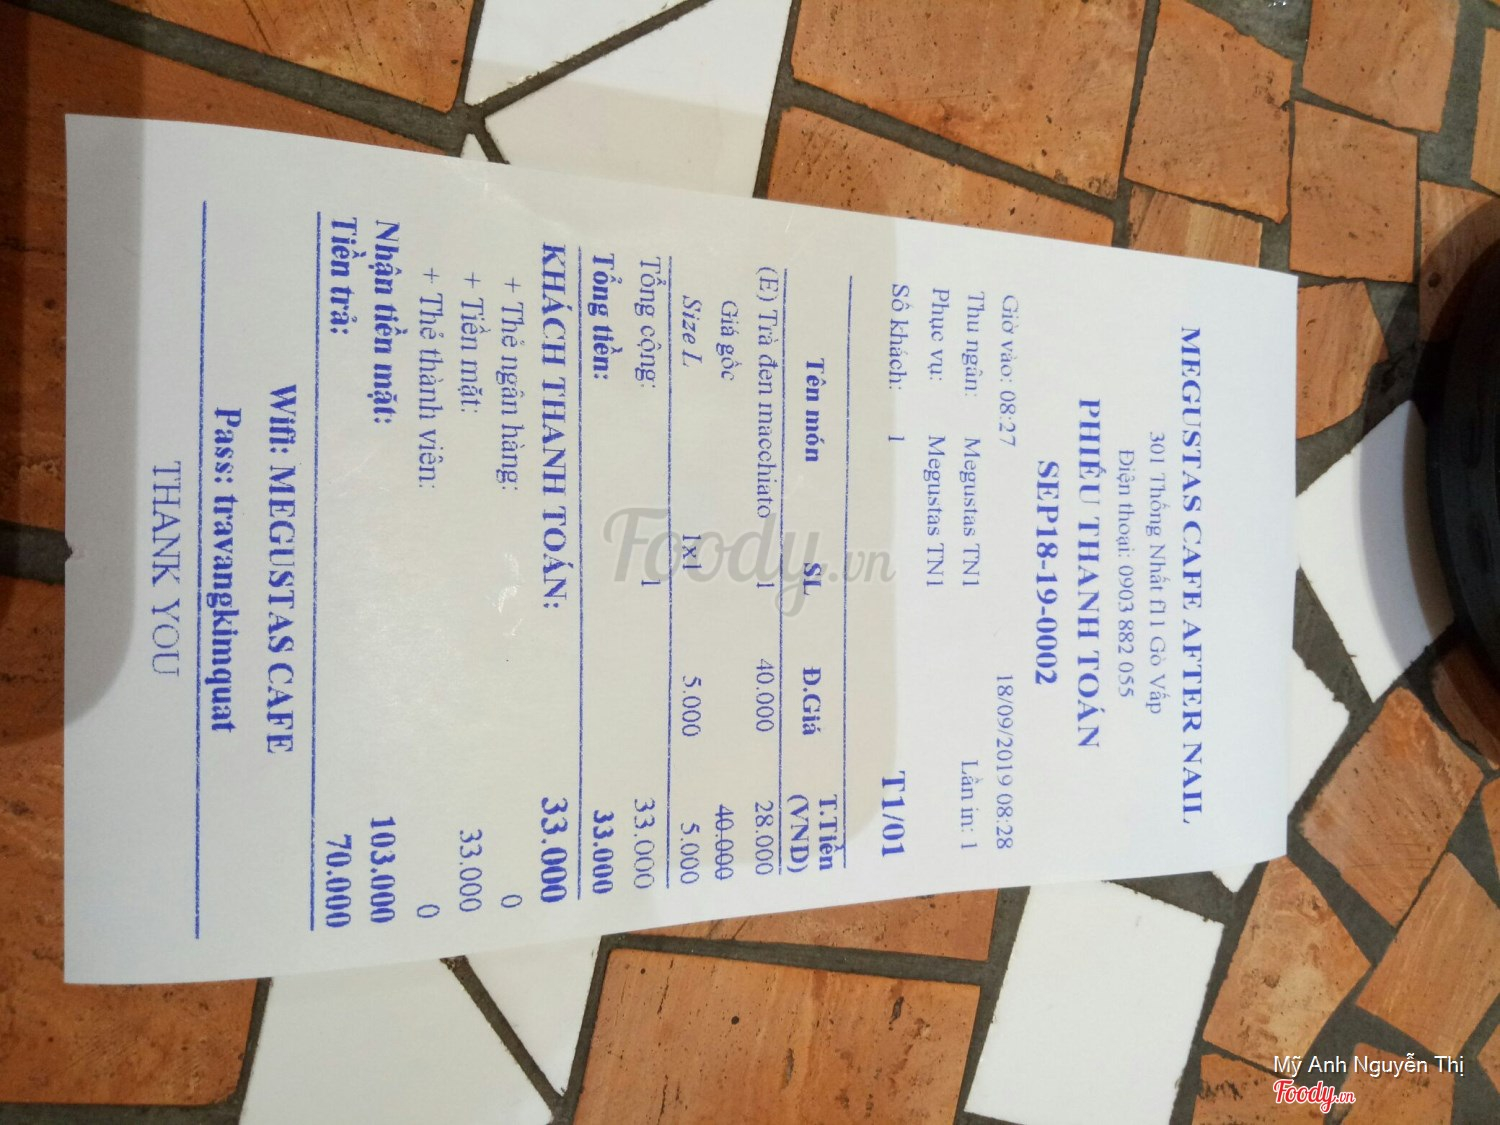 MEGUSTAS CAFE AFTER NAIL
301 Thống Nhất f11 Gò Vấp
Điện thoại: 0903 882 055
PHIẾU THANH TOÁN
SEP18-19-0002
Giờ vào: 08:27 18/09/2019 08:28
Thu ngân: Megustas TN1 Lần in: 1
Phục vụ: Megustas TN1
Số khách: 1 T1/01
Tên món SL Đ.Giá T.Tiền (VND)
(E) Trà đen macchiato 1 40.000 28.000
Giá gốc 40.000
Size L 1x1 5.000 5.000
Tổng cộng: 1 33.000
Tổng tiền: 33.000
KHÁCH THANH TOÁN: 33.000
+ Thẻ ngân hàng: 0
+ Tiền mặt: 33.000
+ Thẻ thành viên: 0
Nhận tiền mặt: 103.000
Tiền trả: 70.000
Wifi: MEGUSTAS CAFE
Pass: travangkimquat
THANK YOU
Foody.vn
Mỹ Anh Nguyễn Thị
Foody.vn